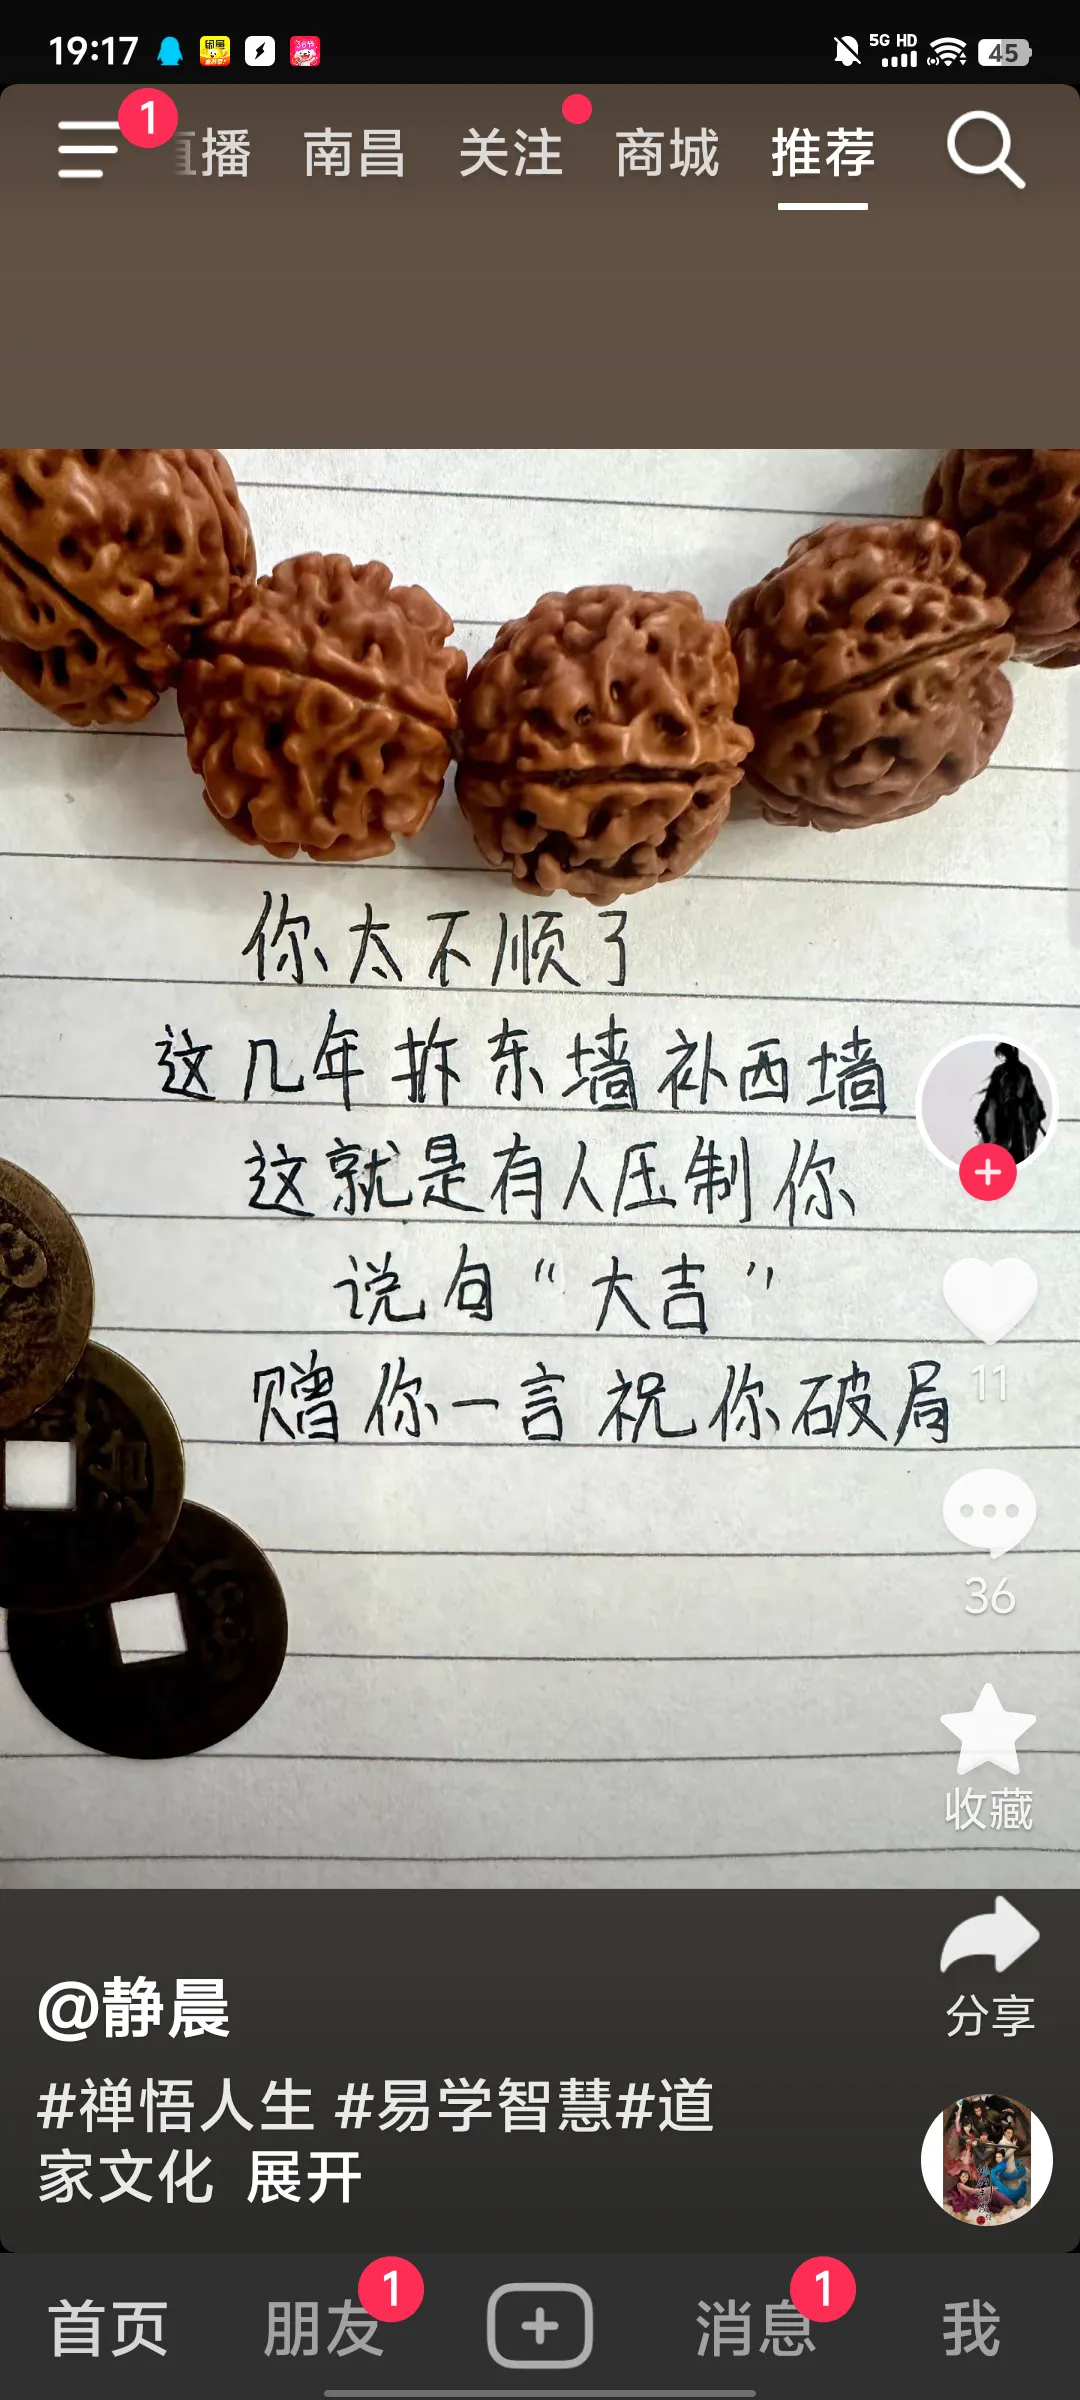 19:17
5G HD
45
1
直播 南昌 关注 商城 推荐
你太不顺了
这几年拆东墙补西墙
这就是有人压制你
说句“大吉”
赠你一言祝你破局
11
36
收藏
分享
@静晨
#禅悟人生 #易学智慧#道
家文化 展开
首页 朋友 1 消息 1 我